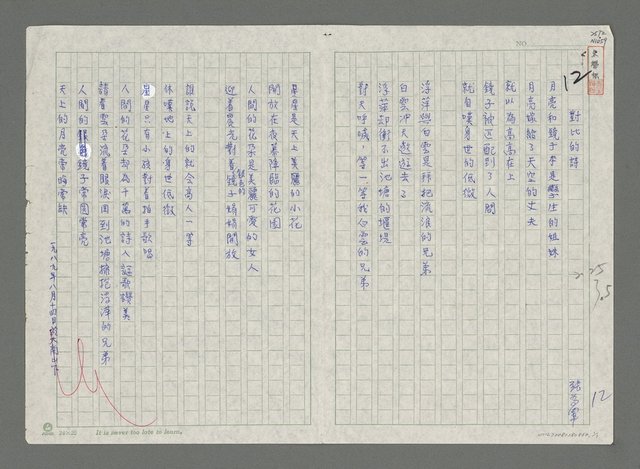 NO.
12
對比的詩
張芳軍
12
月亮和鏡子本是孿生的姐妹
月亮嫁給了天空的丈夫
鏡子被匹配到了人間
就以為高高在上
就自嘆身世的低微
浮萍與白雲是拜把流浪的兄弟
白雲冲天遨遊去了
浮萍却衝不出池塘的堰堤
對天呼喊，等一等我白雲的兄弟
星星是天上美麗的小花
開放在夜幕降臨的花園
人間的花朵是美麗可愛的女人
迎着霞光對着銀色的鏡子嬌嬌開放
誰說天上的就会高人一等
休嘆地上的身世低微
星星只有小孩對着拍手歌唱
人間的花朵却為千萬的詩人謳歌讚美
請看雲朵流着眼淚回到池塘擁抱浮萍的兄弟
人間的鏡子常圓常亮
天上的月亮常晦常缺
一九八九年八月十四日
24×25
It is never too late to learn.